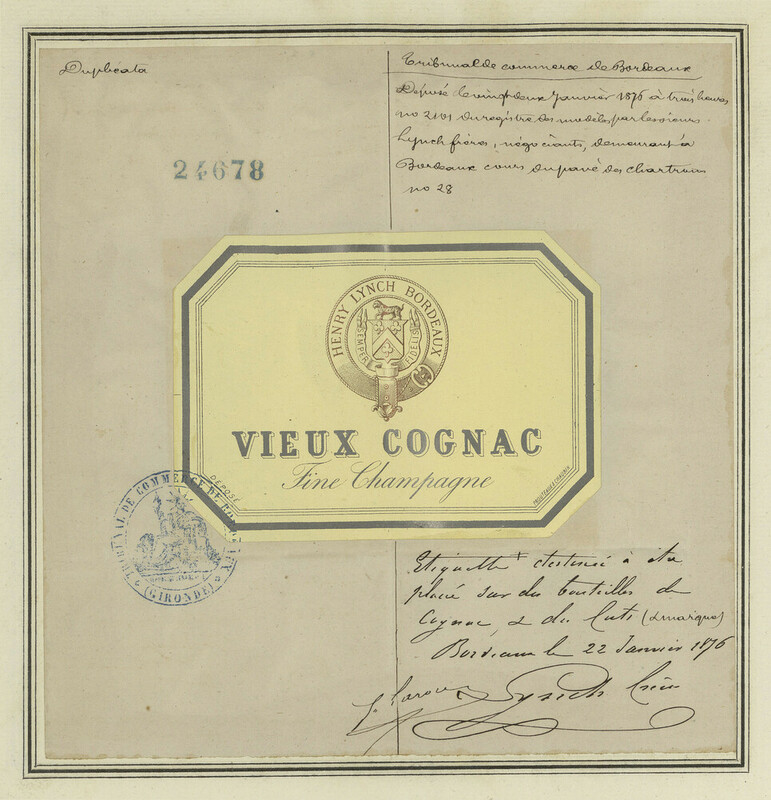 Duplicata
24678
Tribunal de commerce de Bordeaux
Déposé le vingt deux Janvier 1876 à trois heures
no 2101 du registre des modèles par les sieurs
Lynch frères, négociants, demeurant à
Bordeaux cours du pavé des chartrons
no 28
HENRY LYNCH BORDEAUX
SEMPER FIDELIS
VIEUX COGNAC
Fine Champagne
DEPOSÉ
TRIBUNAL DE COMMERCE DE BORDEAUX
(GIRONDE)
Etiquette + destinée à être
placée sur des bouteilles de
Cognac & des futs (& marque)
Bordeaux le 22 Janvier 1876
Lynch frères